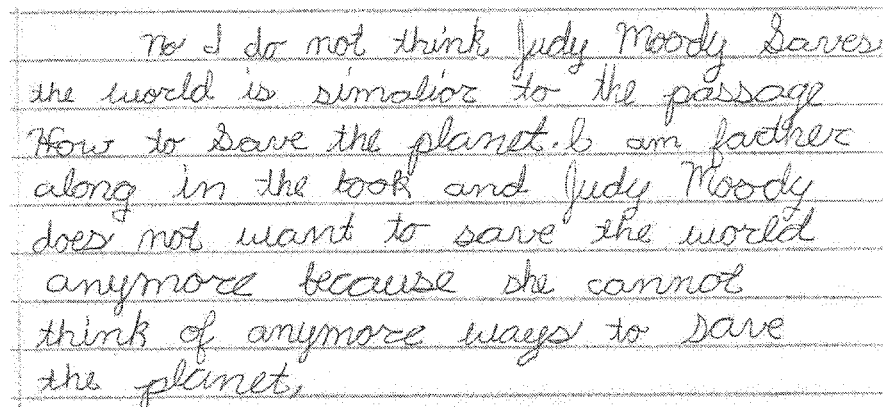 No I do not think Judy Moody Saves
the world is simalior to the passage
How to Save the planet. I am farther
along in the book and Judy Moody
does not want to save the world
anymore because she cannot
think of anymore ways to save
the planet,